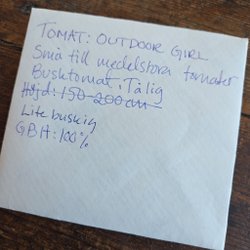 TOMAT: OUTDOOR GIRL
Små till medelstora tomater
Busktomat, Tålig
Höjd: 150-200cm
Lite buskig
GBH: 100%